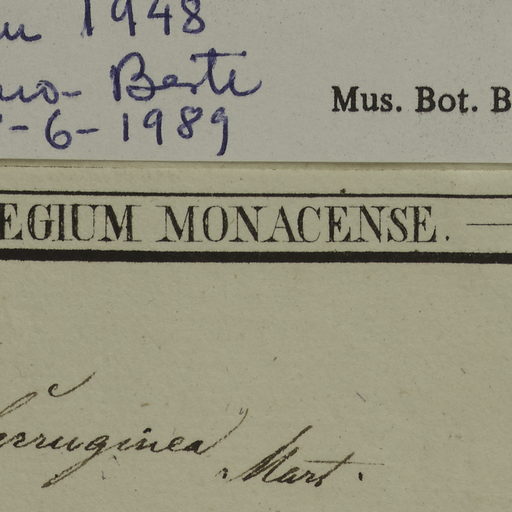 1948
Berti
-6-1989
Mus. Bot. B
EGIUM MONACENSE.
erruginea Mart.